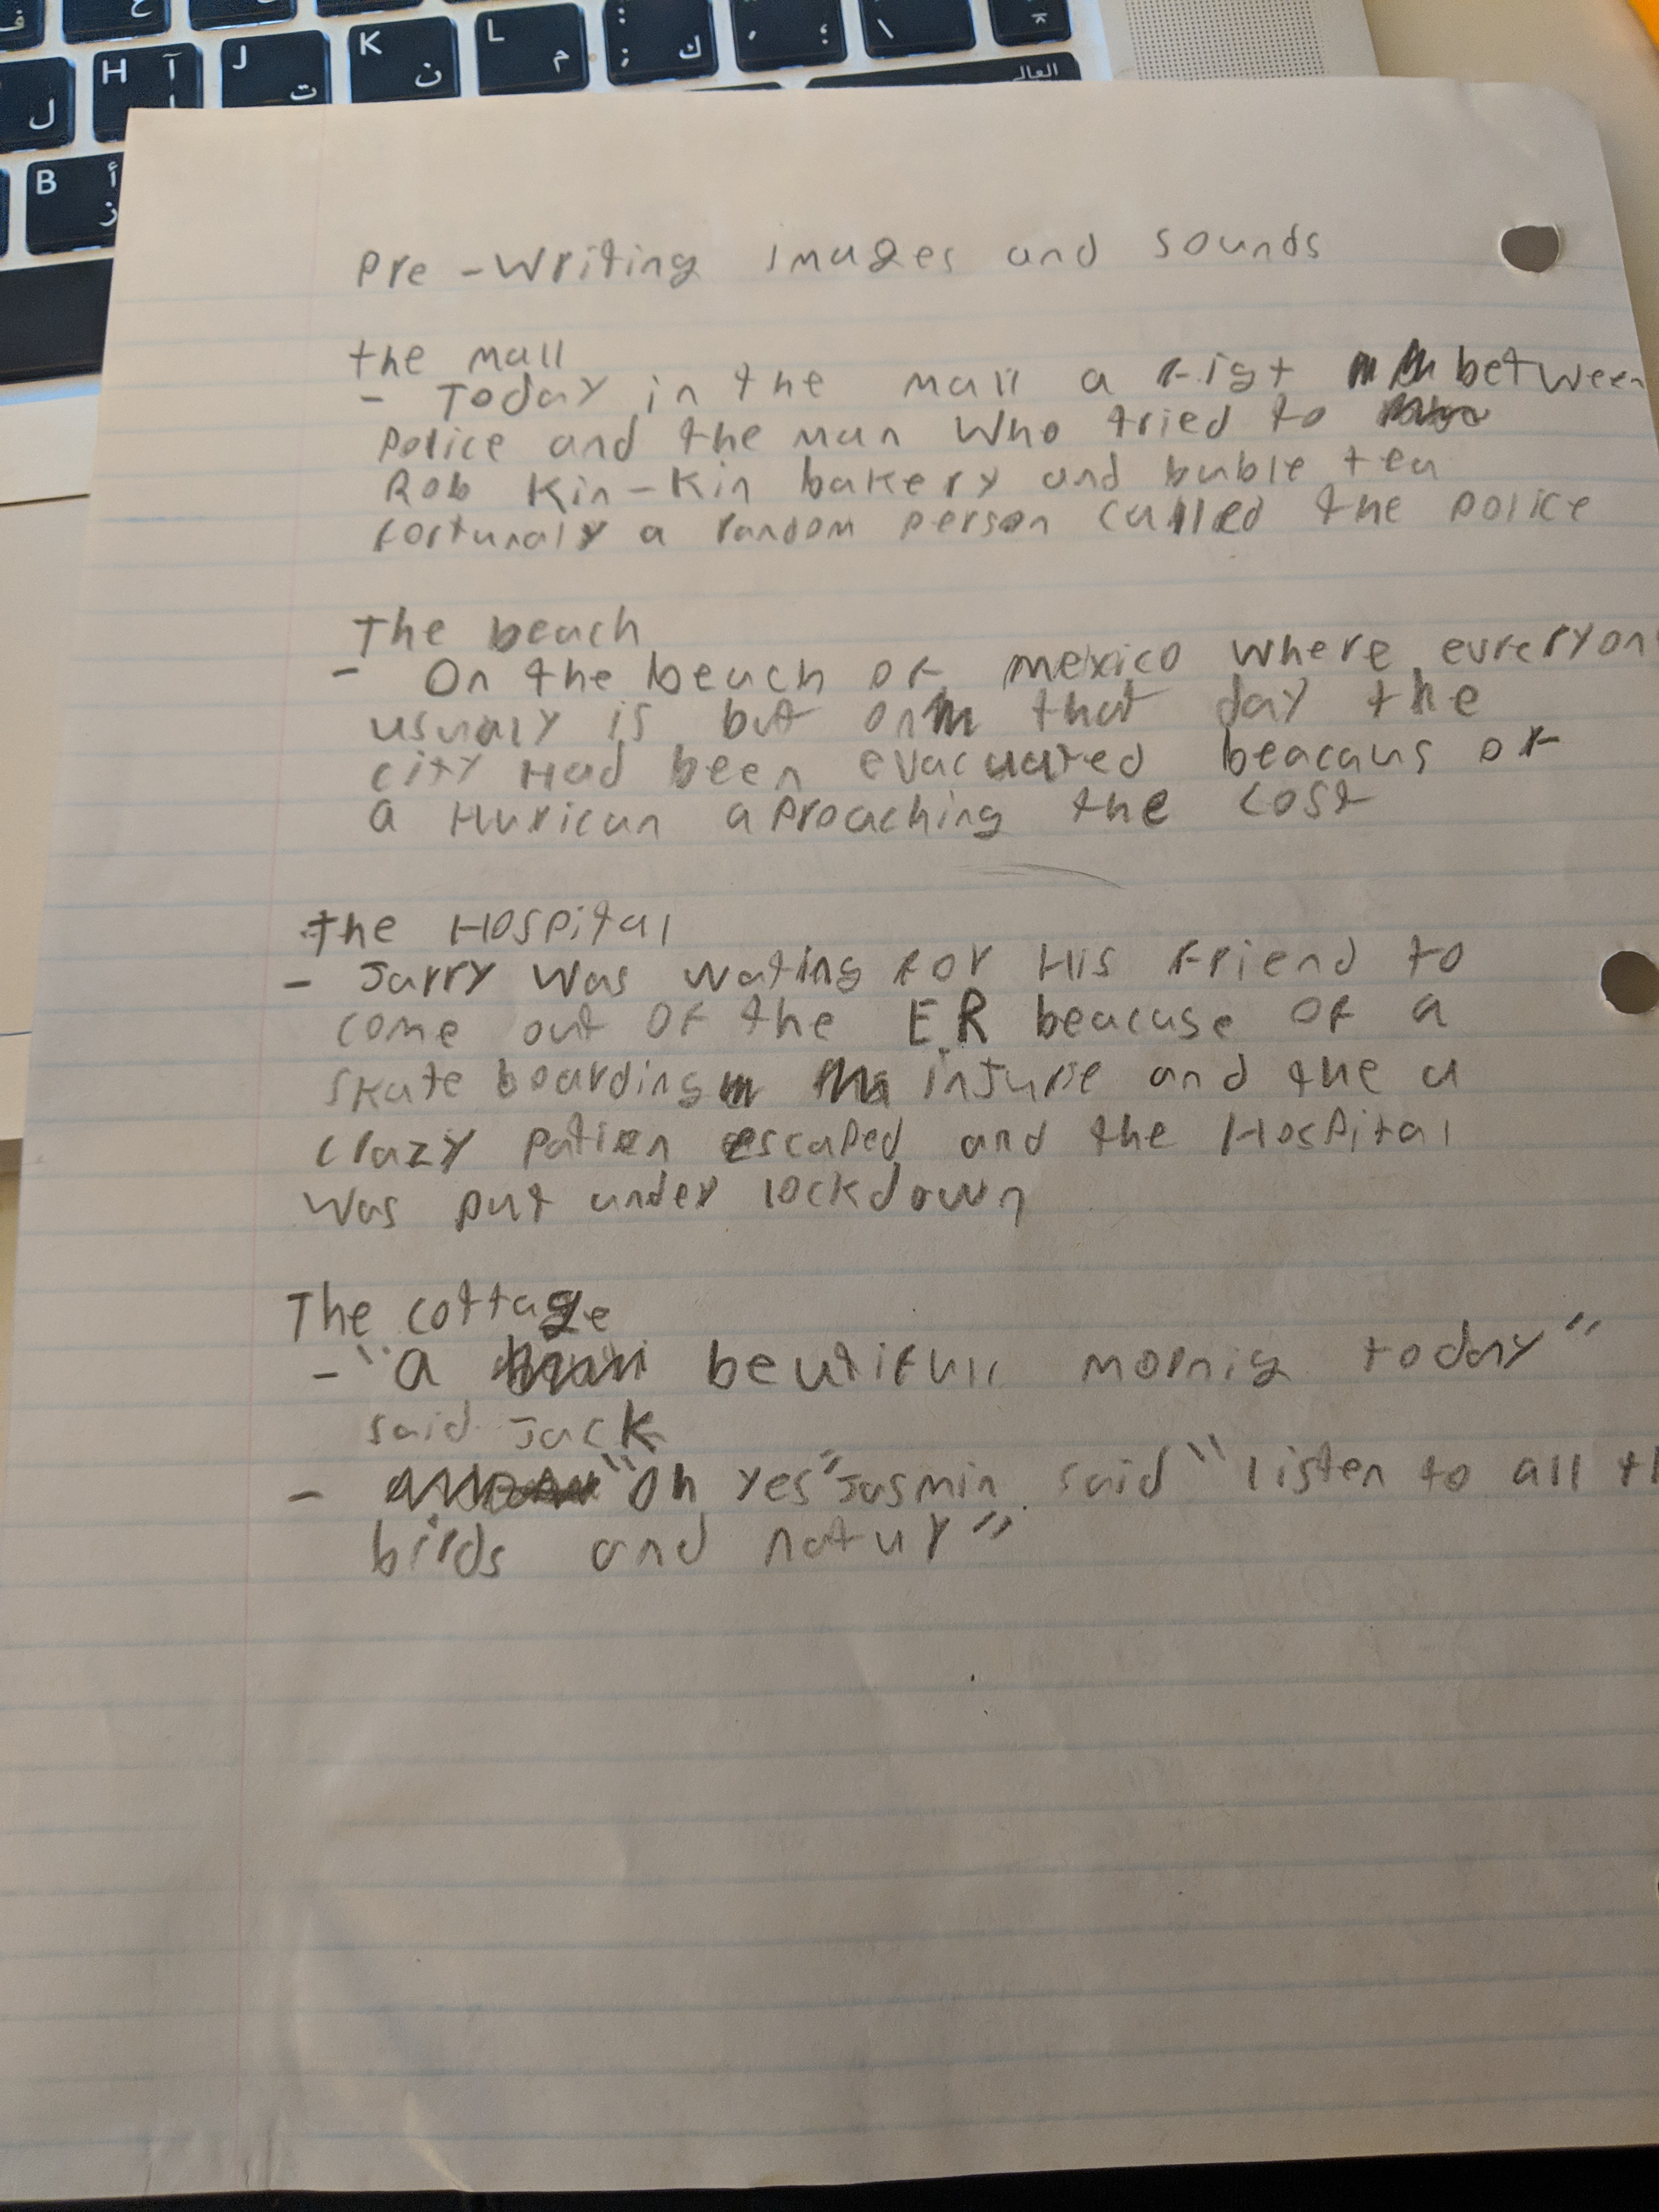 H آ ا
J ت
K ن
L م
: ; ك
\
العالي
ل
B أ ز
Pre-Writing Images and sounds
the mall
- Today in the mall a figt between
police and the man who tried to
Rob Kin-Kin bakery and buble tea
fortunaly a random person called the police
The beach
- On the beach of mexico where evreryon
usualy is but on that day the
city Had been evacuated beacaus of
a Hurican aproaching the cost
the Hospital
- Jarry was wating for His friend to
come out of the ER beacuse of a
skate boarding injurie and the a
crazy patien escaped and the Hospital
was put under lockdown
The cottage
- "a beutifull mornig today"
said Jack
- "Oh yes" Jasmin said "listen to all th
birds and natur"